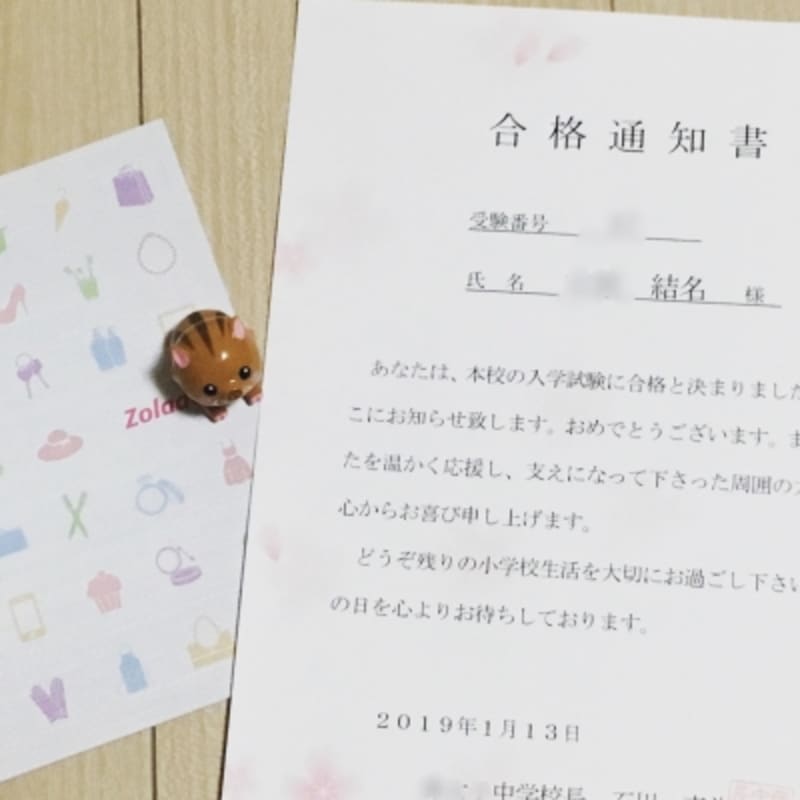 合格通知書
受験番号
氏 名 結名 様
あなたは、本校の入学試験に合格と決まりました
こにお知らせ致します。おめでとうございます。ま
たを温かく応援し、支えになって下さった周囲の
心からお喜び申し上げます。
どうぞ残りの小学校生活を大切にお過ごし下さい
の日を心よりお待ちしております。
2019年1月13日
中学校長 石川